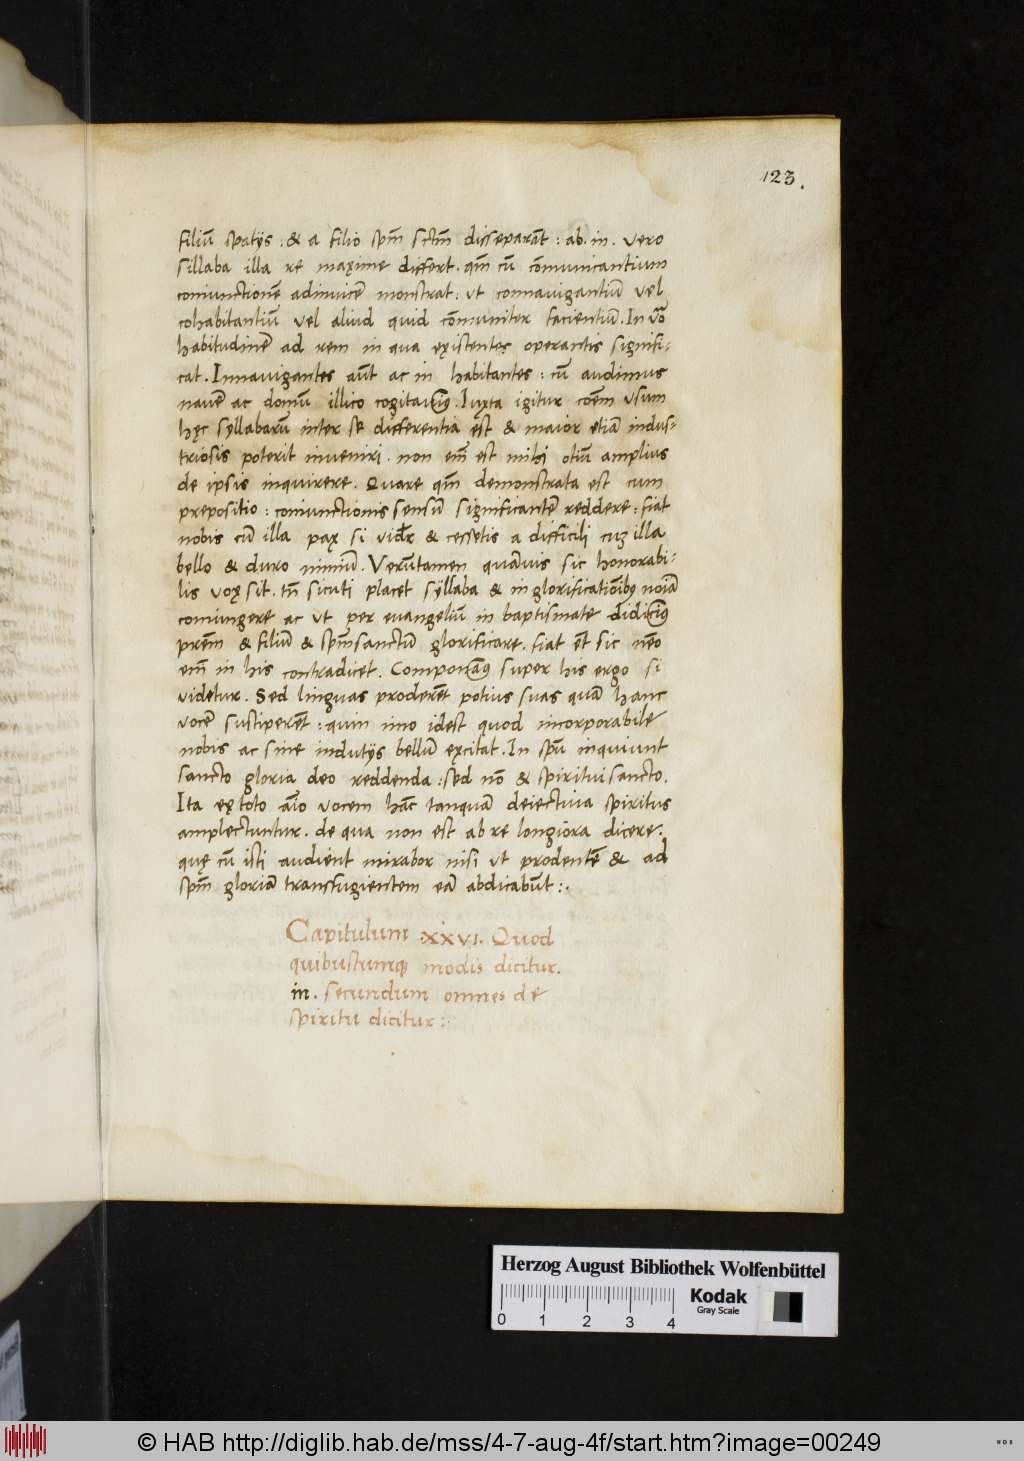 123.
filiū spatijs : & a filio spm̄ sctm̄ disseparāt : ab. in. vero
sillaba illa re maxime differt. qm̄ cū cōmunicantium
coniunctionē adinvicē monstrat : ut connavigantiū vel
cohabitantiū vel aliud quid cōmuniter facientiū. In v̄o
habitudinē ad rem in qua existentes operantis signifi-
cat. Innavigantes aūt ac in habitantes : cū audimus
navē ac domū illico cogitavim9. Iuxta igitur cōem usum
hęc syllabarū inter se differentia est & maior etiā indus-
triosis poterit inveniri. non em̄ est mihi otiū amplius
de ipsis inquirere. Quare qm̄ demonstrata est cum
prepositio : coniunctionis sensū significantē reddere : fiat
nobis cū illa pax si videt̄r & cessetis a difficili cuz illa
bello & duro nimiū. Verūtamen quāvis sic honorabi-
lis vox sit. tn̄ sicuti placet syllaba & in glorificatiōib9 noīa
coniungere ac ut per evangeliū in baptismate didicim9
prēm & filiū & spm̄sanctū glorificare. fiat ēt sic nēo
em̄ in his contradicet. Componam9 super his ergo si
videtur. Sed linguas proderēt potius suas quā hanc
vocē susciperēt : quin imo idest quod incorporabile
nobis ac sine indutijs bellū excitat. In spū inquiunt
sancto gloria deo reddenda : sed nō & spiritui sancto.
Ita ex toto aīo vocem hāc tanquā deiectiva spiritus
amplectuntur. de qua non est ab re longiora dicere.
quę cū isti audient mirabor nisi ut prodentē & ad
spm̄ gloriā transfugientem eā abdicabūt :.
Capitulum .XXVI. Quod
quibuscumq modis dicitur.
in. secundum omnes de
spiritu dicitur :.
Herzog August Bibliothek Wolfenbüttel
Kodak
Gray Scale
0 1 2 3 4
© HAB http://diglib.hab.de/mss/4-7-aug-4f/start.htm?image=00249